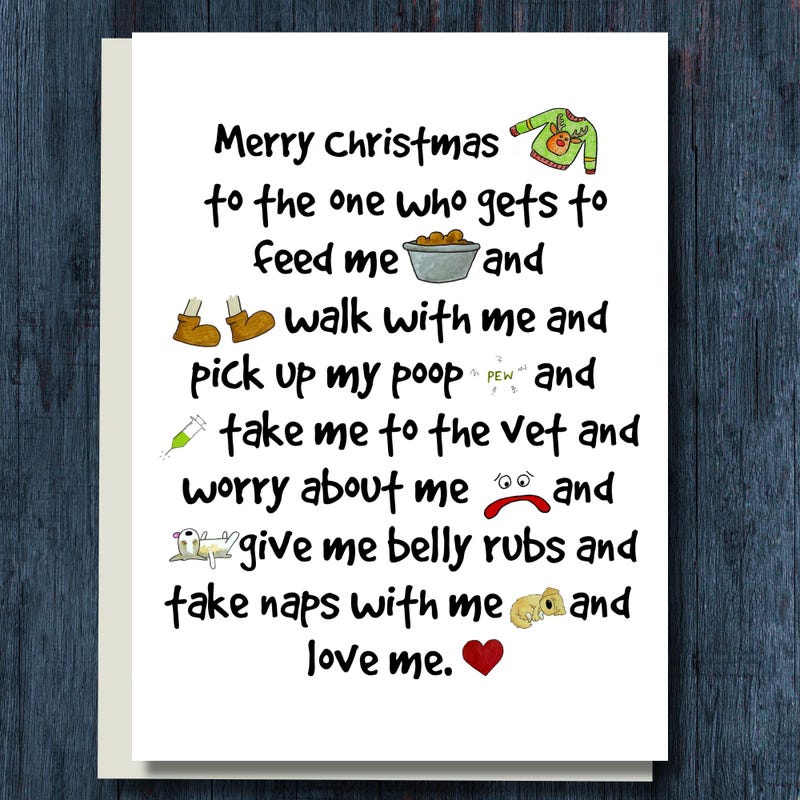 Merry Christmas
to the one who gets to
feed me and
walk with me and
pick up my poop PEW and
take me to the vet and
worry about me and
give me belly rubs and
take naps with me and
love me.